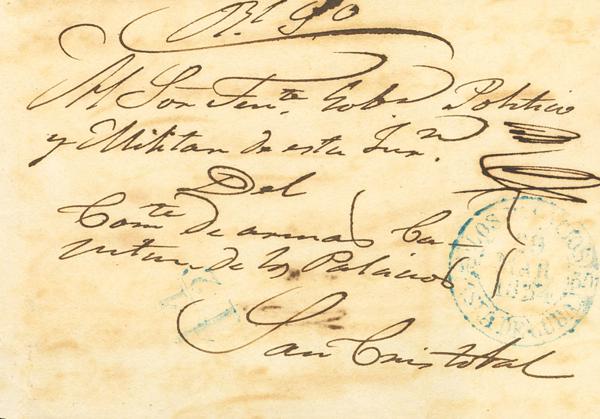 Rl. So
Al Sor Tente. Gobr. Politico
y Militar de esta Jurn.
Del
Comte de armas Ca-
pitan de los Palacios
San Cristobal
LOS PALACIOS
MAR